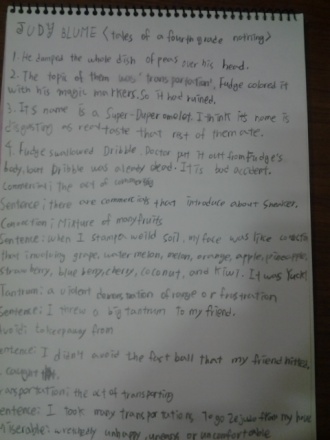 JUDY BLUME <tales of a fourth grade nothing>
1. He dumped the whole dish of peas over his head.
2. The topic of them was "transportation", Fudge colored it
with his magic markers. So it had ruined.
3. Its name is a Super-Duper omelet. I think its name is
disgusting as read taste that rest of them ate.
4. Fudge swallowed Dribble. Doctor put it out from Fudge's
body, but Dribble was already dead. It is bad accident.
Commercial: The act of
Sentence: there are commercing that introduce about Sneaker.
Mixture of many fruits
Sentence: when I stamps weild soil, my face was like
that involving grape, water melon, melon, orange, apple, pineapple,
strawberry, blue berry, cherry, coconut, and kiwi. It was Yuck!
Tantrum: a violent demonstration of rage or frustration
Sentence: I threw a big tantrum to my friend.
: take away from
entence: I didn't avoid the fact ball that my friend
caught
ransportation: the act of transporting
entence: I took many transportations to go from my house
iserable: wretchedly unhappy, uneasy or uncomfortable